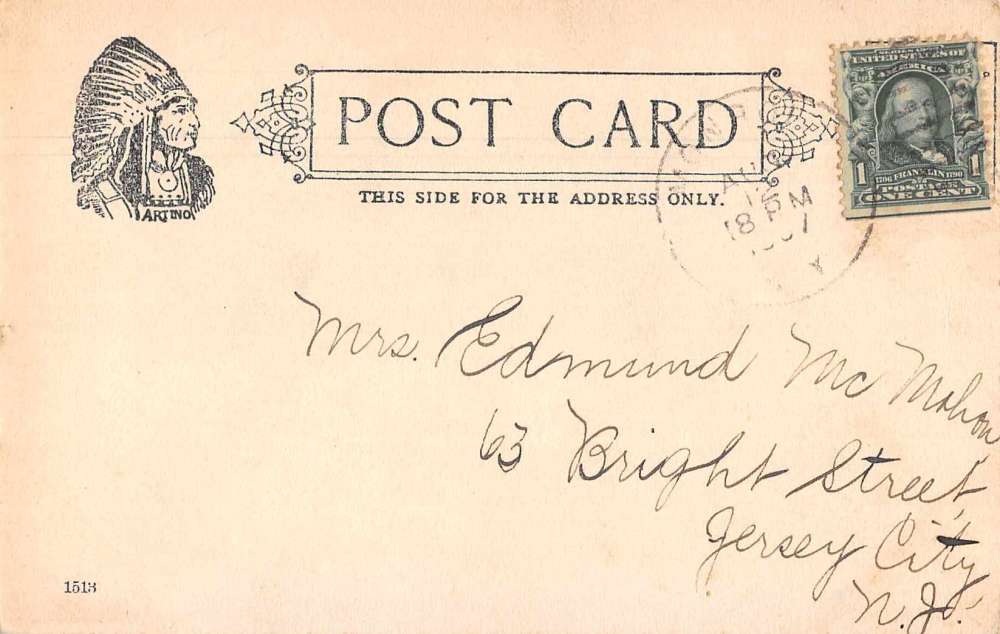 POST CARD
THIS SIDE FOR THE ADDRESS ONLY.
ARTINO
UNITED STATES OF
AMERICA
1 1706 FRANKLIN 1790 1
POSTAGE
ONE CENT
8 PM
Mrs. Edmund McMahon
63 Bright Street,
Jersey City,
N.J.
1513